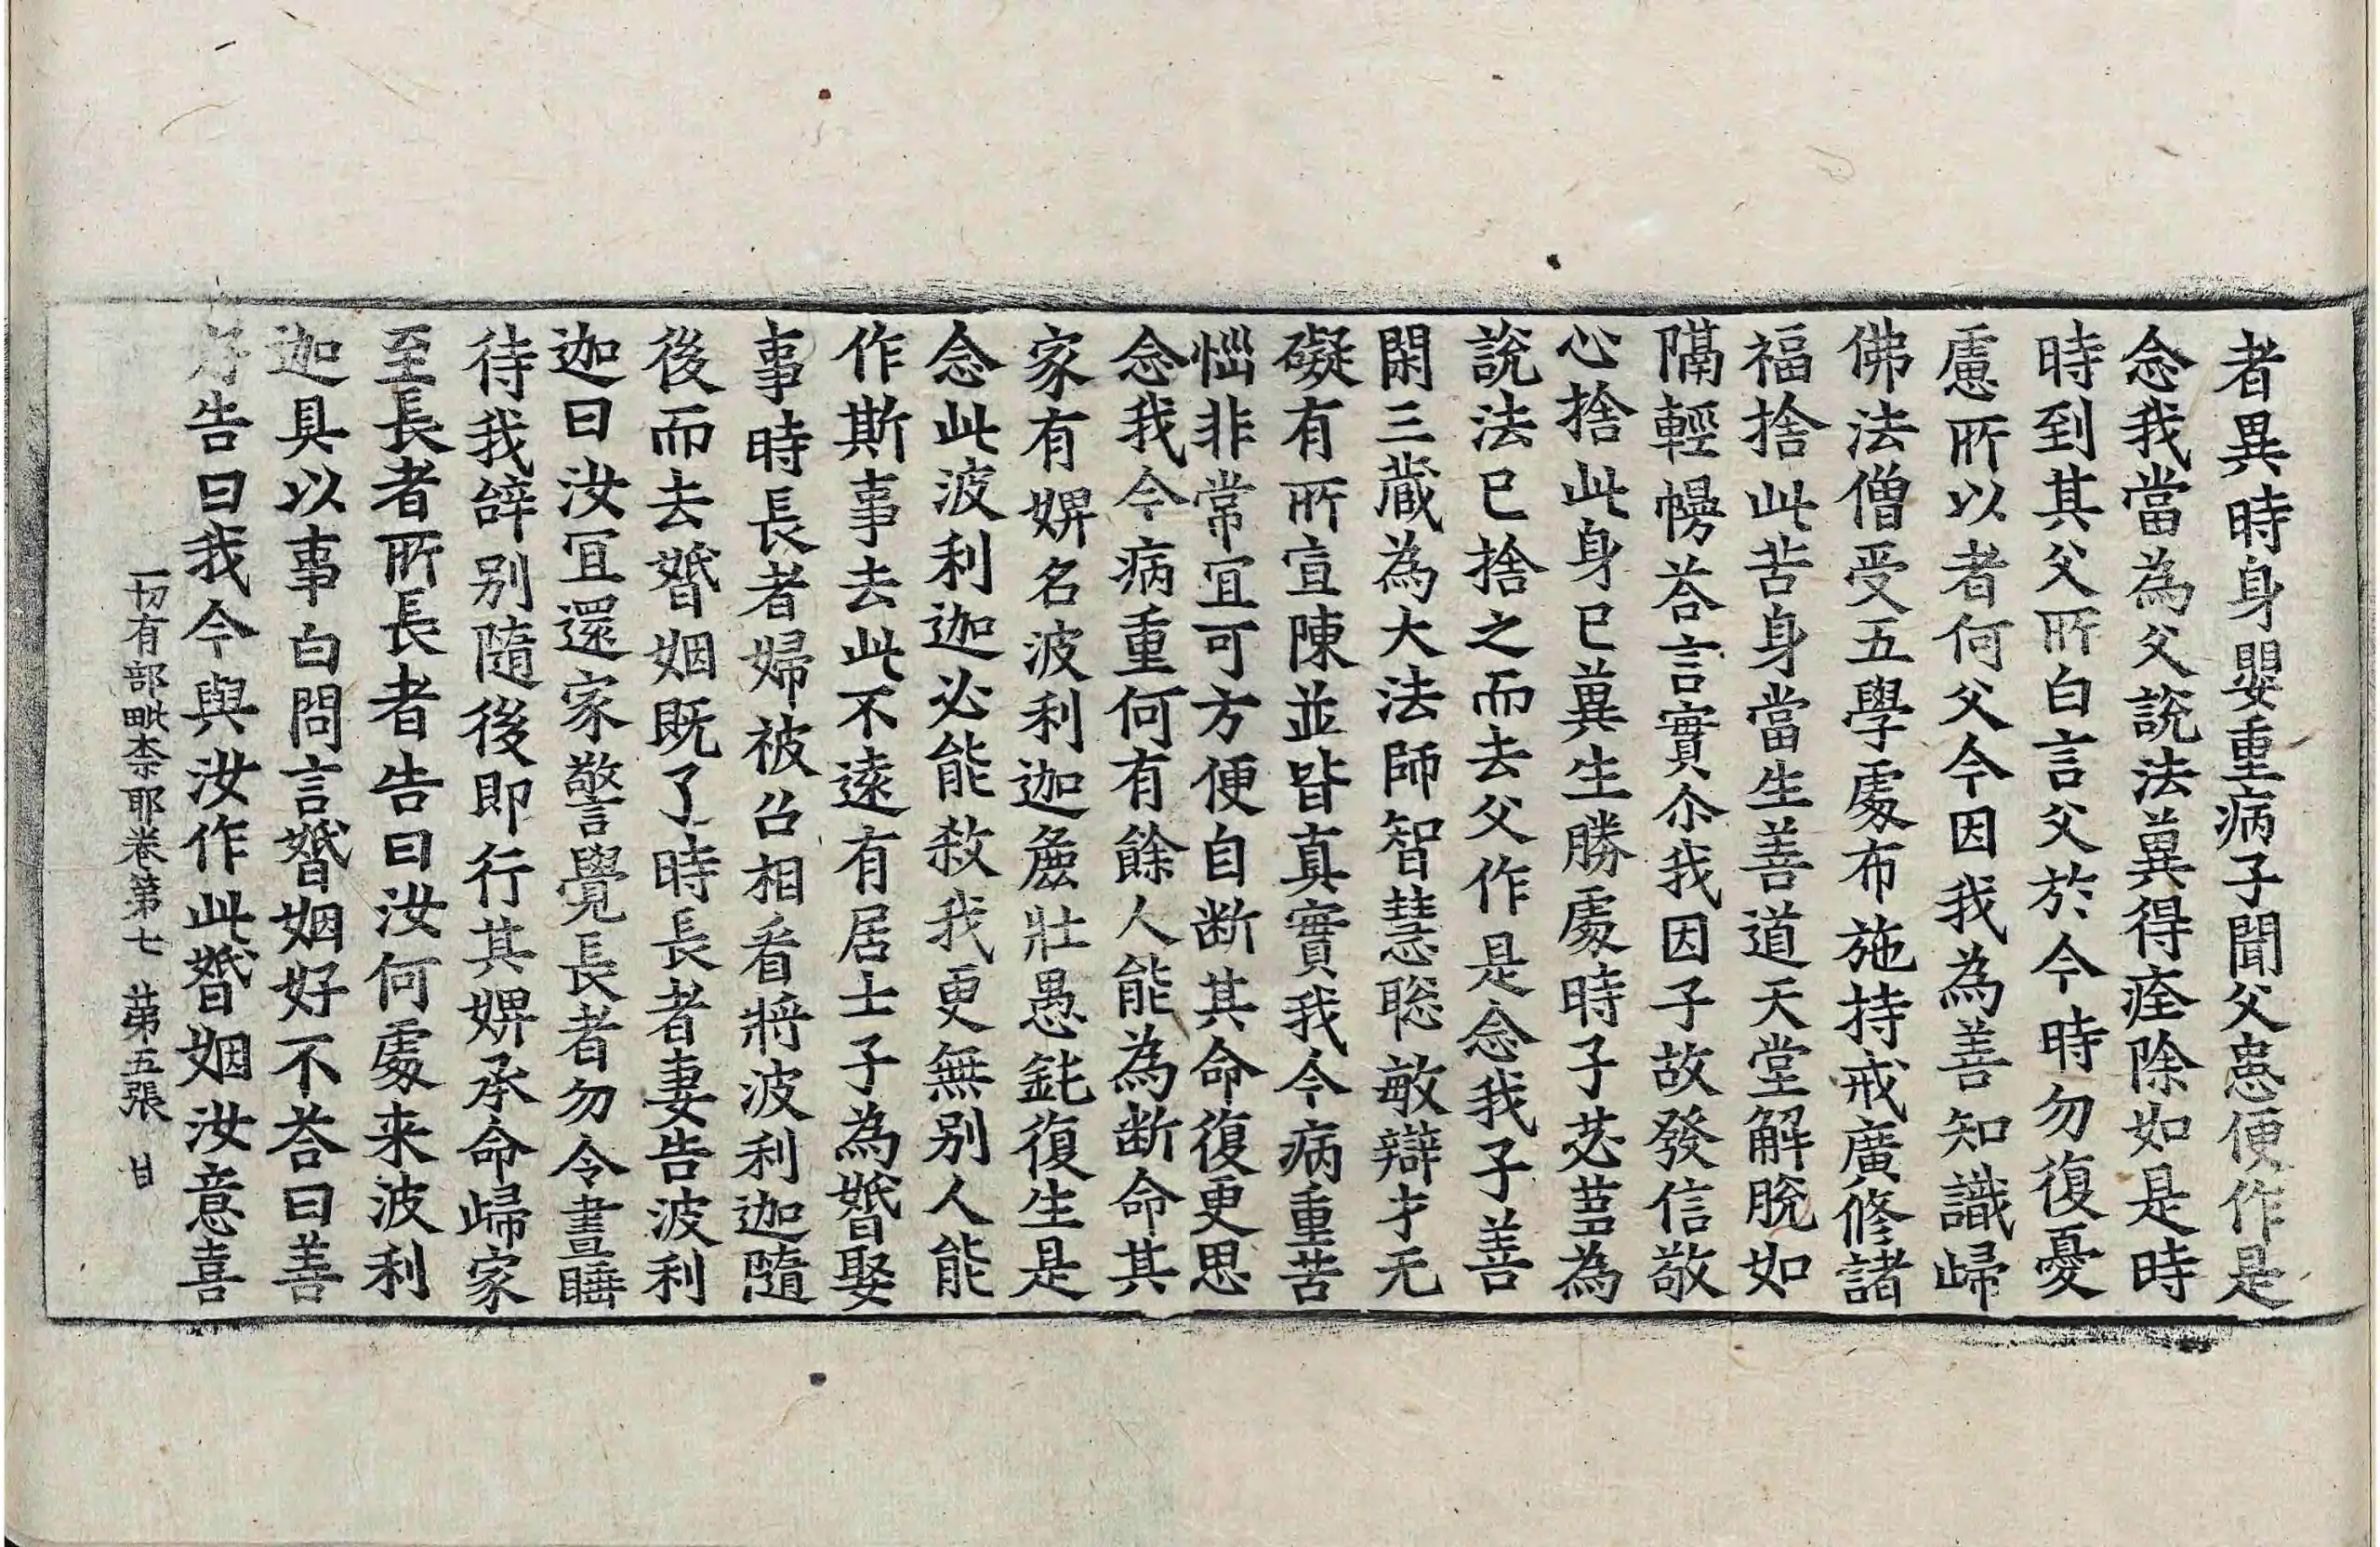 者異時身嬰重病子聞父患便作是
念我當為父說法兾得痊除如是時
時到其父所白言父於今時勿復憂
慮所以者何父今因我為善知識歸
佛法僧受五學處布施持戒廣修諸
福捨此苦身當生善道天堂解脫如
隔輕幔荅言實尒我因子故發信敬
心捨此身已兾生勝處時子苾蒭為
說法已捨之而去父作是念我子善
閑三藏為大法師智慧聡敏辯才无
礙有所宣陳並皆真實我今病重苦
惱非常宜可方便自断其命復更思
念我今病重何有餘人能為断命其
家有婢名波利迦麁壯愚鈍復生是
念此波利迦必能殺我更無別人能
作斯事去此不遠有居士子為婚娶
事時長者婦被召相看將波利迦隨
後而去婚姻既了時長者妻告波利
迦曰汝宜還家警覺長者勿令晝睡
待我辝別隨後即行其婢承命歸家
至長者所長者告曰汝何處来波利
迦具以事白問言婚姻好不荅曰善
好告曰我今與汝作此婚姻汝意喜
一切有部毗柰耶卷第七 苐五張 甘